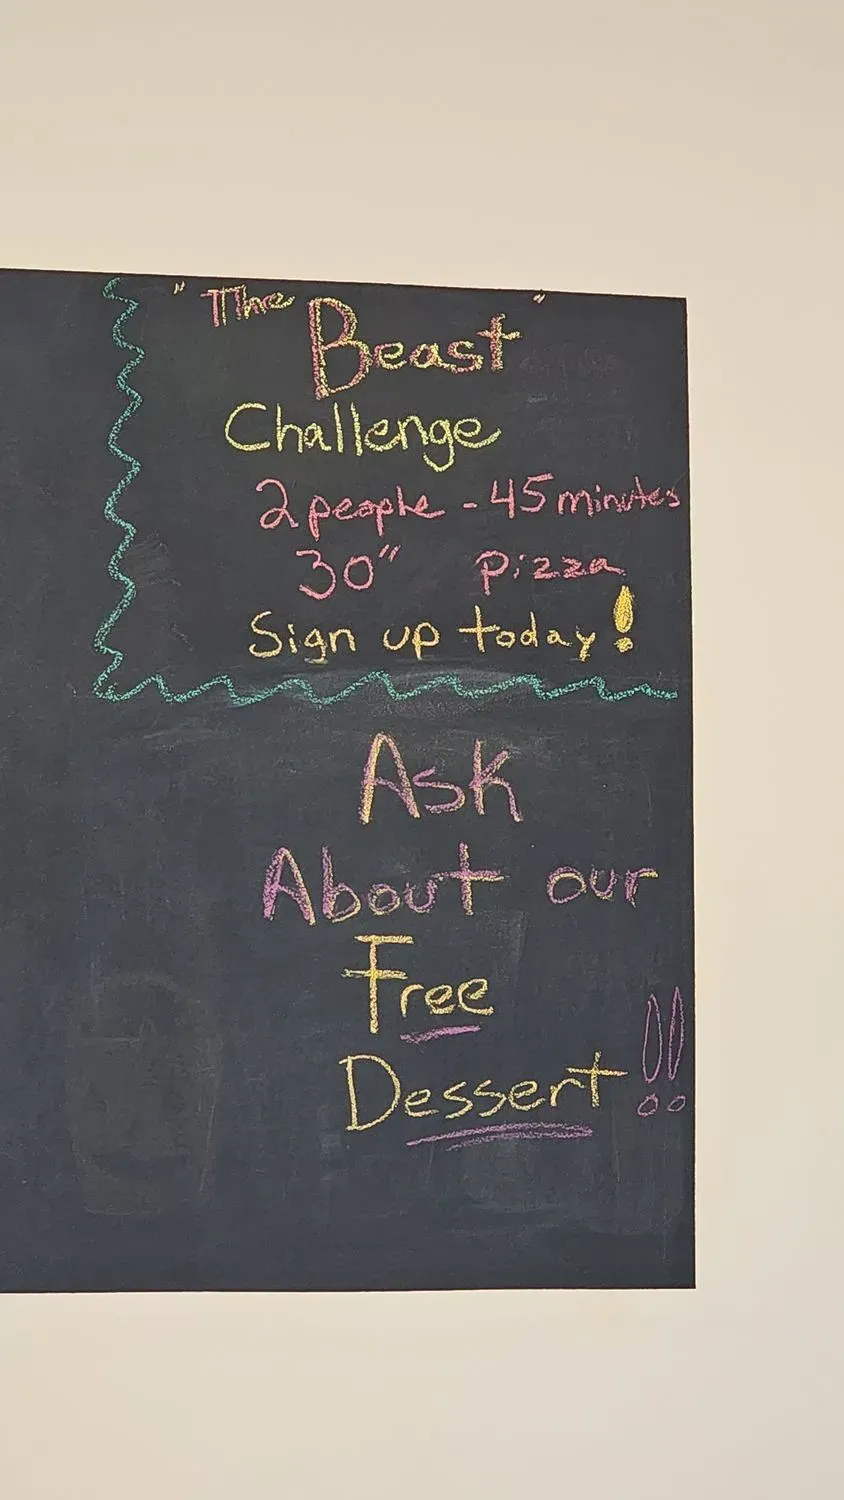 "The Beast"
Challenge
2 people - 45 minutes
30" Pizza
Sign up today!
Ask
About our
Free
Dessert!!